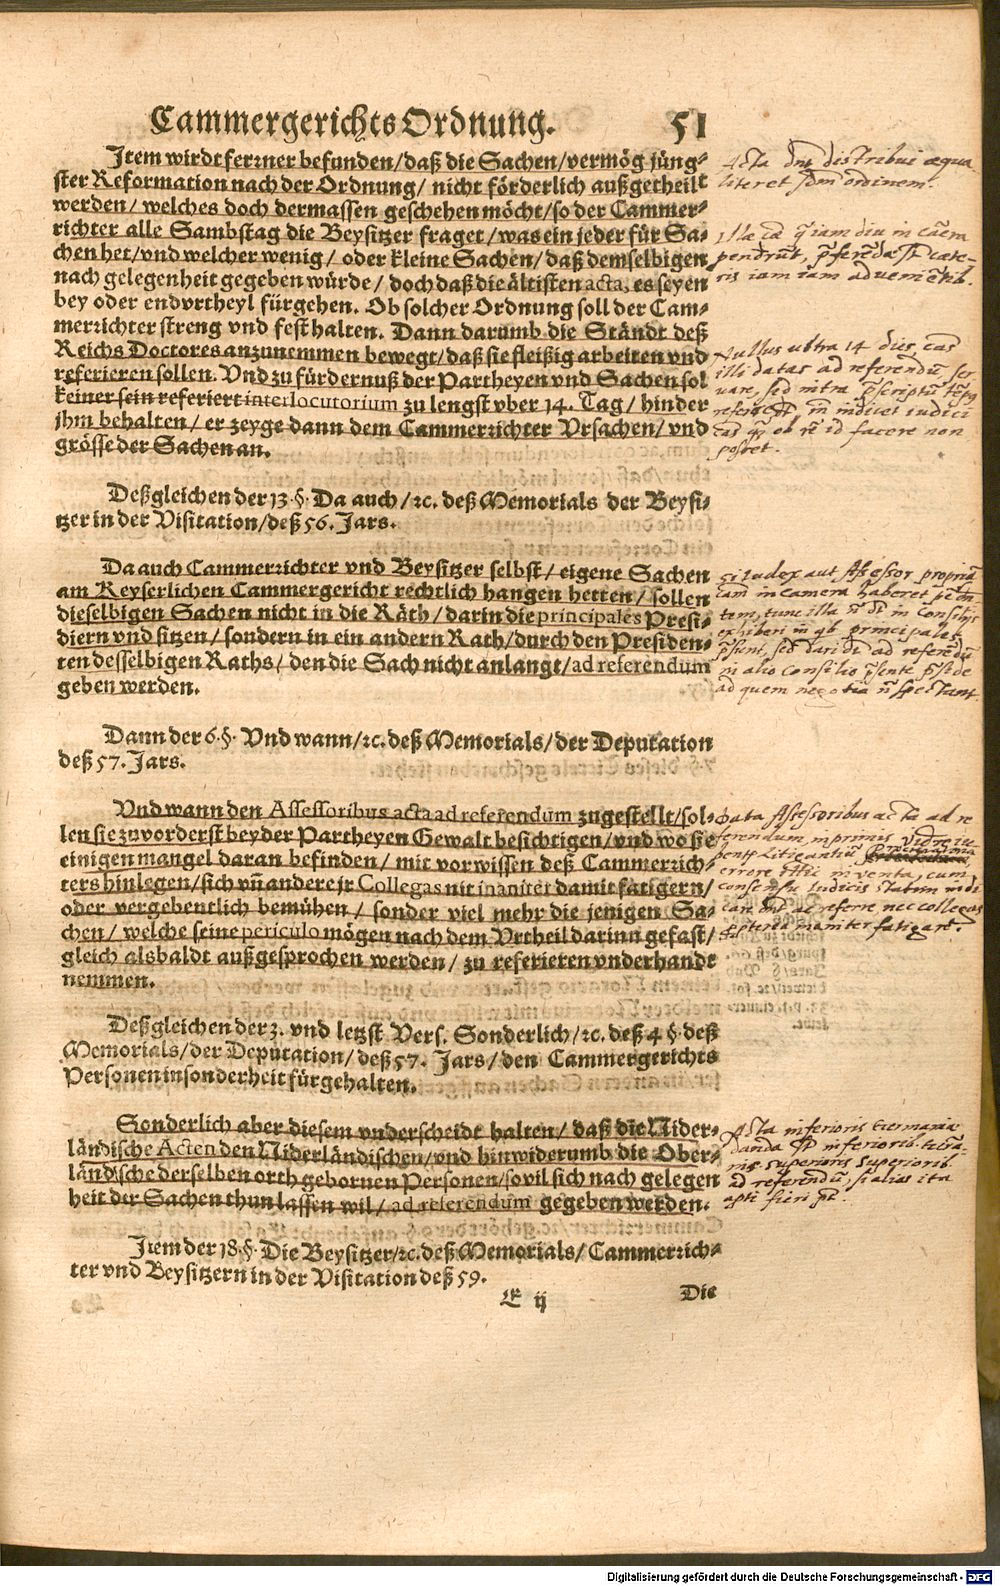 Cammergerichts Ordnung. 51
Item wirdt ferrner befunden/daß die Sachen/vermög jüng-
ster Reformation nach der Ordnung/ nicht förderlich außgetheilt
werden/ welches doch dermassen geschehen möcht/so der Cammer-
richter alle Sambstag die Beysitzer fraget/was ein jeder für Sa-
chen het/vnd welcher wenig/ oder kleine Sachen/ daß demselbigen
nach gelegenheit gegeben würde/ doch daß die ältisten acta, es seyen
bey oder endvrtheyl fürgehen. Ob solcher Ordnung soll der Cam-
merrichter streng vnd fest halten. Dann darumb die Ständt deß
Reichs Doctores anzunemmen bewegt/daß sie fleißig arbeiten vnd
referieren sollen. Vnd zu fürdernuß der Partheyen vnd Sachen sol
keiner sein referiert interlocutorium zu lengst vber 14. Tag/ hinder
jhm behalten/ er zeyge dann dem Cammerrichter Vrsachen/ vnd
grösse der Sachen an.
Deßgleichen der 13.§. Da auch/ꝛc. deß Memorials der Beysi-
tzer in der Visitation/deß 56. Jars.
Da auch Cammerrichter vnd Beysitzer selbst/ eigene Sachen
am Keyserlichen Cammergericht rechtlich hangen hetten/ sollen
dieselbigen Sachen nicht in die Räth/ darin die principales Presi-
diern vnd sitzen/ sondern in ein andern Rath/durch den Presiden-
ten desselbigen Raths/ den die Sach nicht anlangt/ad referendum
geben werden.
Dann der 6.§. Vnd wann/ꝛc. deß Memorials/der Deputation
deß 57. Jars.
Vnd wann den Assessoribus acta ad referendum zugestellt/sol-
len sie zuvorderst beyder Partheyen Gewalt besichtigen/vnd wo sie
einigen mangel daran befinden/ mit vorwissen deß Cammerrich-
ters hinlegen/sich vñ andere jr Collegas nit inaniter damit fatigern/
oder vergebentlich bemühen/ sonder viel mehr die jenigen Sa-
chen/ welche seine periculo mögen nach dem Vrtheil darinn gefast/
gleich alsbaldt außgesprochen werden/ zu referieren vnderhandt
nemmen.
Deßgleichen der 3. vnd letzst Vers. Sonderlich/ꝛc. deß 4 §. deß
Memorials/der Deputation/ deß 57. Jars/ den Cammergerichts
Personen insonderheit fürgehalten.
Sonderlich aber diesem vnderscheidt halten/ daß die Nider-
ländische Acten den Niderländischen/vnd hinwiderumb die Ober-
ländische derselben orth gebornen Personen/sovil sich nach gelegen
heit der Sachen thun lassen wil/ ad referendum gegeben werden.
Item der 18.§. Die Beysitzer/ꝛc. deß Memorials/ Cammerrich-
ter vnd Beysitzern in der Visitation deß 59.
E ij Die
Acta distribui æqua
liter et ordinem.
iam diu in
cæte-
ris iam iam
Nullus ultra 14 dies, eas
illi datas ad referendū
sed intra
iudici
id facere non
posset.
Si Iudex aut Assessor propriā
in camera haberet
tunc illa
exhiberi principales
sed dari ad referēdū
in alio Consilio
ad quem negotia spectant.
Data Assessoribus acta ad re
ferendum, inprimis
inventa, cum
consensu Iudicis
referre nec collegas
fatigare.
Acta inferioris Germaniæ
danda
superioris
ad referendū, si alias ita
apti fieri
Digitalisierung gefördert durch die Deutsche Forschungsgemeinschaft - DFG